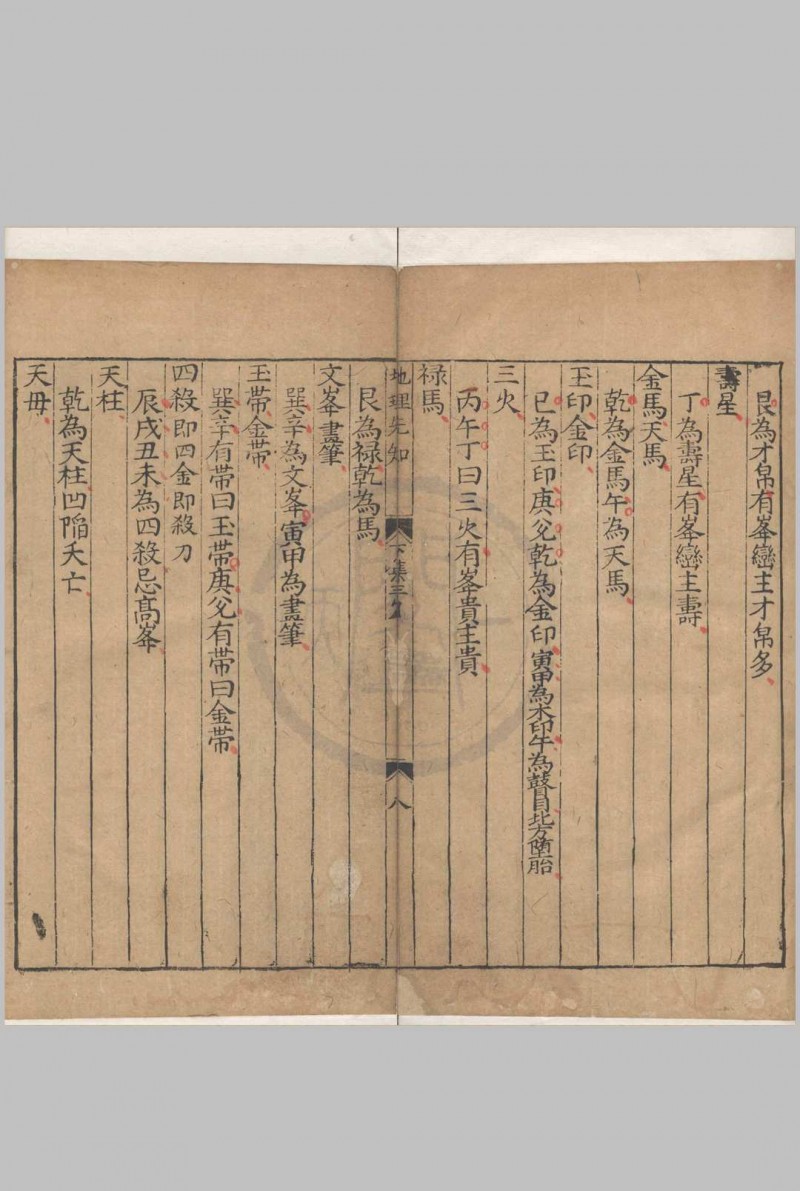 艮為才帛有峯巒主才帛多
壽星
丁為壽星有峯巒主壽
金馬天馬
乾為金馬午為天馬
玉印金印
巳為玉印庚兊乾為金印寅甲為木印午為瞽目北方墮胎
三火
丙午丁曰三火有峯貴主貴
禄馬
艮為禄乾為馬
地理先知 下集三 八
文峯畫筆
巽辛為文峯寅甲為畫筆
玉帶金帶
巽辛有帶曰玉帶庚兊有帶曰金帶
四殺即四金即殺刀
辰戌丑未為四殺忌髙峯
天柱
乾為天柱凹陥夭亡
天毋